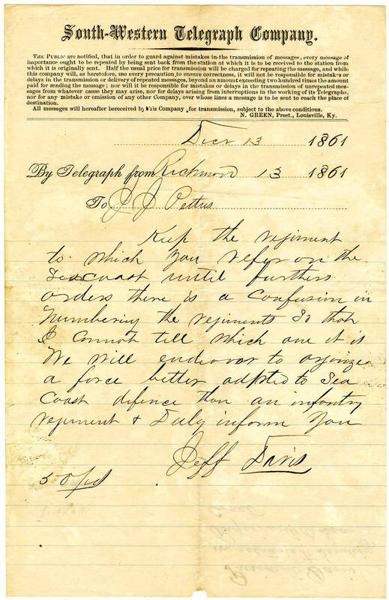 South-Western Telegraph Company.
THE PUBLIC are notified, that in order to guard against mistakes in the transmission of messages, every message of
importance ought to be repeated by being sent back from the station at which it is to be received to the station from
which it is originally sent. Half the usual price for transmission will be charged for repeating the message, and while
this company will, as heretofore, use every precaution to ensure correctness, it will not be responsible for mistakes or
delays in the transmission or delivery of repeated messages, beyond an amount exceeding two hundred times the amount
paid for sending the message; nor will it be responsible for mistakes or delays in the transmission of unrepeated messages
from whatever cause they may arise, nor for delays arising from interruptions in the working of its Telegraphs,
nor for any mistake or omission of any other Company, over whose lines a message is to be sent to reach the place of
destination.
All messages will hereafter be received by this Company for transmission, subject to the above conditions.
N. GREEN, Prest., Louisville, Ky.
Decr 13 1861
By Telegraph from Richmond 13 1861
To J J Pettus
Keep the regiment
to which you refer on the
Sea coast until further
orders there is a confusion in
numbering the regiments So that
I cannot tell which one it is
We will endeavor to organize
a force better adapted to Sea
Coast defence than an infantry
regiment & Duly inform You
Jeff Davis
50 pd